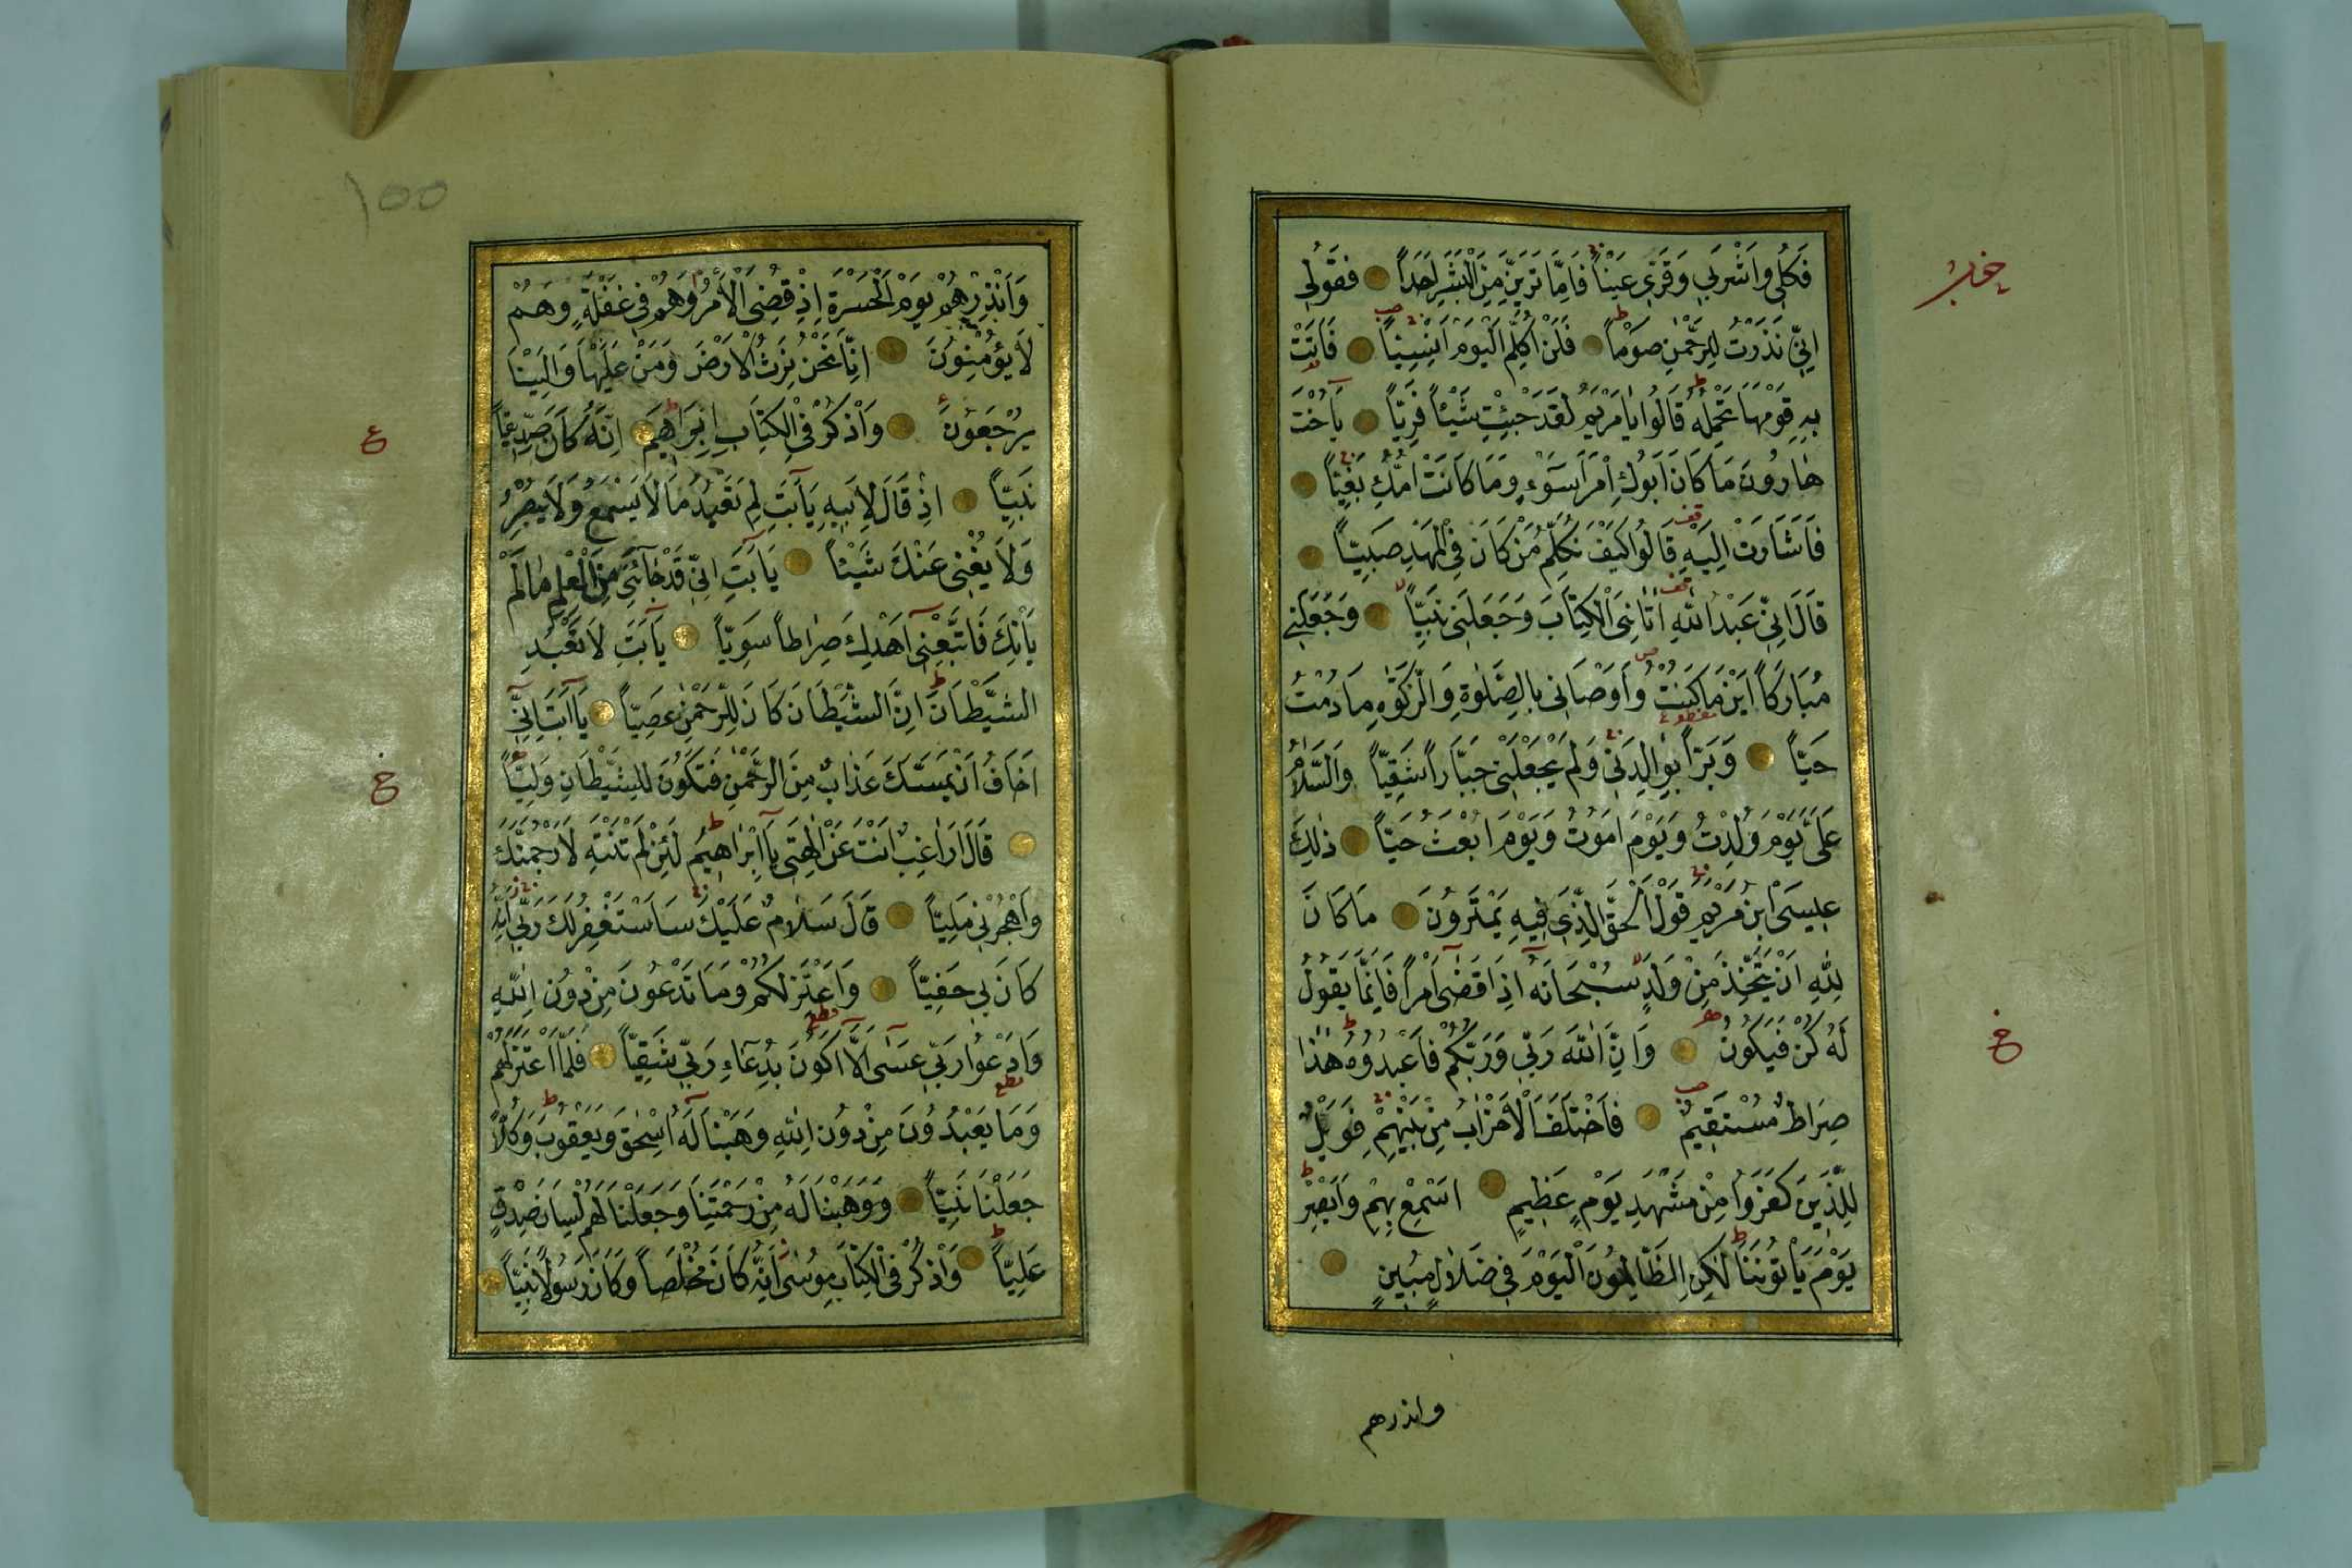 فَكُلِي وَاشْرَبِي وَقَرِّي عَيْنًا فَاِمَّا تَرَيِنَّ مِنَ الْبَشَرِ اَحَدًا فَقُولِي
اِنِّي نَذَرْتُ لِلرَّحْمٰنِ صَوْمًا فَلَنْ اُكَلِّمَ الْيَوْمَ اِنْسِيًّا فَاَتَتْ
بِهِ قَوْمَهَا تَحْمِلُهُ قَالُوا يَا مَرْيَمُ لَقَدْ جِئْتِ شَيْئًا فَرِيًّا يَآ اُخْتَ
هٰارُونَ مَا كَانَ اَبُوكِ امْرَاَ سَوْءٍ وَمَا كَانَتْ اُمُّكِ بَغِيًّا
فَاَشَارَتْ اِلَيْهِ قَالُوا كَيْفَ نُكَلِّمُ مَنْ كَانَ فِي الْمَهْدِ صَبِيًّا
قَالَ اِنِّي عَبْدُ اللهِ اٰتَانِيَ الْكِتَابَ وَجَعَلَنِي نَبِيًّا وَجَعَلَنِي
مُبَارَكًا اَيْنَ مَا كُنْتُ وَاَوْصَانِي بِالصَّلٰوةِ وَالزَّكٰوةِ مَا دُمْتُ
حَيًّا وَبَرًّا بِوَالِدَتِي وَلَمْ يَجْعَلْنِي جَبَّارًا شَقِيًّا وَالسَّلَامُ
عَلَيَّ يَوْمَ وُلِدْتُ وَيَوْمَ اَمُوتُ وَيَوْمَ اُبْعَثُ حَيًّا ذٰلِكَ
عِيسَى ابْنُ مَرْيَمَ قَوْلَ الْحَقِّ الَّذِي فِيهِ يَمْتَرُونَ مَا كَانَ
لِلّٰهِ اَنْ يَتَّخِذَ مِنْ وَلَدٍ سُبْحَانَهُ اِذَا قَضٰى اَمْرًا فَاِنَّمَا يَقُولُ
لَهُ كُنْ فَيَكُونُ وَاِنَّ اللهَ رَبِّي وَرَبُّكُمْ فَاعْبُدُوهُ هٰذَا
صِرَاطٌ مُسْتَقِيمٌ فَاخْتَلَفَ الْاَحْزَابُ مِنْ بَيْنِهِمْ فَوَيْلٌ
لِلَّذِينَ كَفَرُوا مِنْ مَشْهَدِ يَوْمٍ عَظِيمٍ اَسْمِعْ بِهِمْ وَاَبْصِرْ
يَوْمَ يَاْتُونَنَا لٰكِنِ الظَّالِمُونَ الْيَوْمَ فِي ضَلَالٍ مُبِينٍ
خ
وانذرهم
١٥٥
وَاَنْذِرْهُمْ يَوْمَ الْحَسْرَةِ اِذْ قُضِيَ الْاَمْرُ وَهُمْ فِي غَفْلَةٍ وَهُمْ
لَا يُؤْمِنُونَ اِنَّا نَحْنُ نَرِثُ الْاَرْضَ وَمَنْ عَلَيْهَا وَاِلَيْنَا
يُرْجَعُونَ وَاذْكُرْ فِي الْكِتَابِ اِبْرَاهِيمَ اِنَّهُ كَانَ صِدِّيقًا
نَبِيًّا اِذْ قَالَ لِاَبِيهِ يَآ اَبَتِ لِمَ تَعْبُدُ مَا لَا يَسْمَعُ وَلَا يُبْصِرُ
وَلَا يُغْنِي عَنْكَ شَيْئًا يَآ اَبَتِ اِنِّي قَدْ جَآءَنِي مِنَ الْعِلْمِ مَا لَمْ
يَاْتِكَ فَاتَّبِعْنِي اَهْدِكَ صِرَاطًا سَوِيًّا يَآ اَبَتِ لَا تَعْبُدِ
الشَّيْطَانَ اِنَّ الشَّيْطَانَ كَانَ لِلرَّحْمٰنِ عَصِيًّا يَآ اَبَتِ اِنِّي
اَخَافُ اَنْ يَمَسَّكَ عَذَابٌ مِنَ الرَّحْمٰنِ فَتَكُونَ لِلشَّيْطَانِ وَلِيًّا
قَالَ اَرَاغِبٌ اَنْتَ عَنْ اٰلِهَتِي يَآ اِبْرَاهِيمُ لَئِنْ لَمْ تَنْتَهِ لَاَرْجُمَنَّكَ
وَاهْجُرْنِي مَلِيًّا قَالَ سَلَامٌ عَلَيْكَ سَاَسْتَغْفِرُ لَكَ رَبِّي اِنَّهُ
كَانَ بِي حَفِيًّا وَاَعْتَزِلُكُمْ وَمَا تَدْعُونَ مِنْ دُونِ اللهِ
وَاَدْعُوا رَبِّي عَسٰى اَلَّا اَكُونَ بِدُعَاءِ رَبِّي شَقِيًّا فَلَمَّا اعْتَزَلَهُمْ
وَمَا يَعْبُدُونَ مِنْ دُونِ اللهِ وَهَبْنَا لَهُ اِسْحٰقَ وَيَعْقُوبَ وَكُلًّا
جَعَلْنَا نَبِيًّا وَوَهَبْنَا لَهُمْ مِنْ رَحْمَتِنَا وَجَعَلْنَا لَهُمْ لِسَانَ صِدْقٍ
عَلِيًّا وَاذْكُرْ فِي الْكِتَابِ مُوسٰى اِنَّهُ كَانَ مُخْلَصًا وَكَانَ رَسُولًا نَبِيًّا
ع
خ